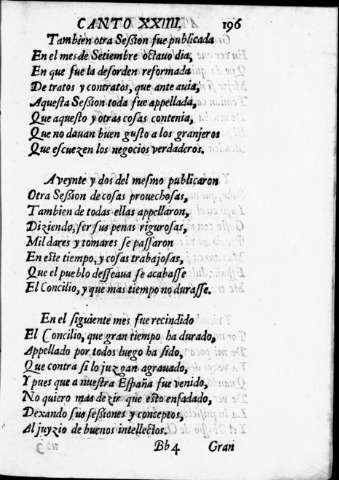 CANTO XXIIII. 196
Tambien otra Seſsion fue publicada
En el mes de Setiembre octauo dia,
En que fue la deſorden reformada
De tratos y contratos, que ante auia,
Aqueſta Seſsion toda fue appellada,
Que aqueſto y otras coſas contenia,
Que no dauan buen guſto a los granjeros
Que eſcuezen los negocios verdaderos.
A veynte y dos del meſmo publicaron
Otra Seſsion de coſas prouechoſas,
Tambien de todas ellas appellaron,
Diziendo, ſer ſus penas riguroſas,
Mil dares y tomares ſe paſſaron
En eſte tiempo, y coſas trabajoſas,
Que el pueblo deſſeaua ſe acabaſſe
El Concilio, y que mas tiempo no duraſſe.
En el ſiguiente mes fue recindido
El Concilio, que gran tiempo ha durado,
Appellado por todos luego ha ſido,
Que contra ſi lo juzgan agrauado,
Y pues que a nueſtra Eſpaña fue venido,
No quiero mas dezir que eſto enfadado,
Dexando ſus ſeſsiones y conceptos,
Al juyzio de buenos intellectos.
Bb4 Gran